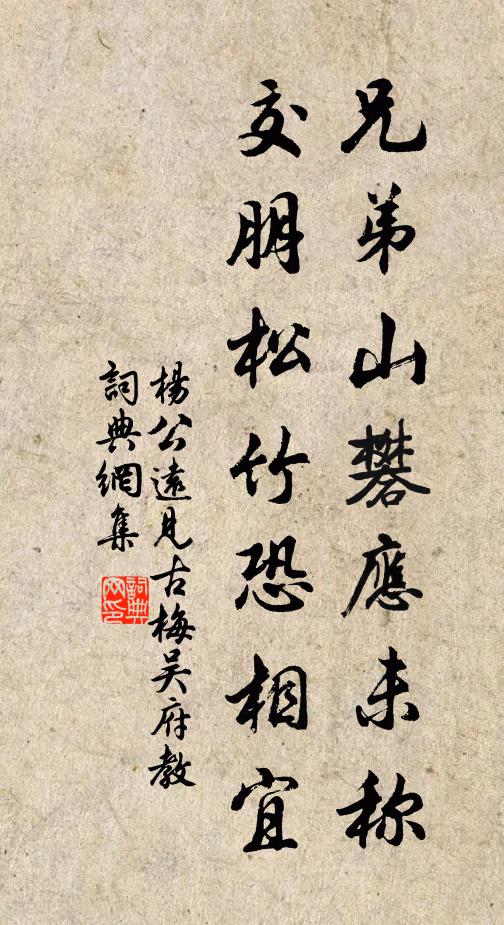 兄弟山礬應未称
交朋松竹恐相宜
楊公遠見古梅吳府教
詞典網集
詞典
网印